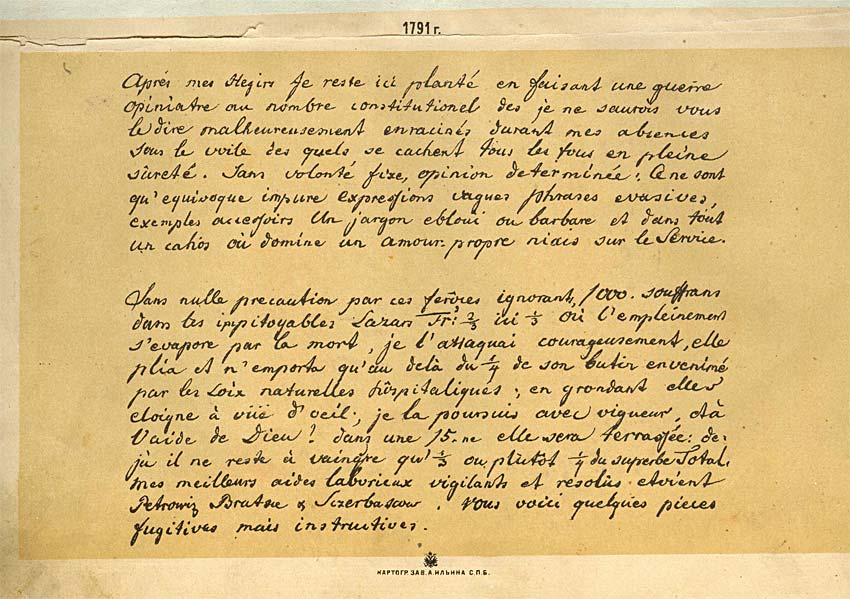 1791 г.
Après mes Hegirs Je reste ici planté en faisant une guerre
opiniatre au nombre constitutionel des je ne saurois vous
le dire malheureusement enracinés durant mes absences
sous le voile des quels se cachent tous les fous en pleine
sûreté. Sans volonté fixe, opinion determinée; Ce ne sont
qu'equivoque impure expressions vagues phrases evasives,
exemples accessoirs Un jargon ebloui ou barbare et dans tout
un cahôs où domine un amour-propre niais sur le Service.
Sans nulle precaution par ces ferôces ignorant, 1000. souffrans
dans les impitoyables Lazars ⅔ ici ⅓ où l'empleinement
s'evapore par la mort, je l'attaquai courageusement, elle
plia et n'emporta qu'au delà du ¼ de son butin envenimé
par les Loix naturelles hôspitaliques; en grondant elle s
eloigne à vüe d'oeil; je la poursuis avec vigueur, et à
l'aide de Dieu! dans une 15.ne elle sera terrassée: de-
jà il ne reste à vaingre qu'⅓ ou plûtot ¼ du superbe Total.
mes meilleurs aides laborieux vigilants et resolûs etoient
Petrowiz &. Vous voici quelques pieces
fugitives mais instructives.
КАРТОГР. ЗАВ. А. ИЛЬИНА С.П.Б.